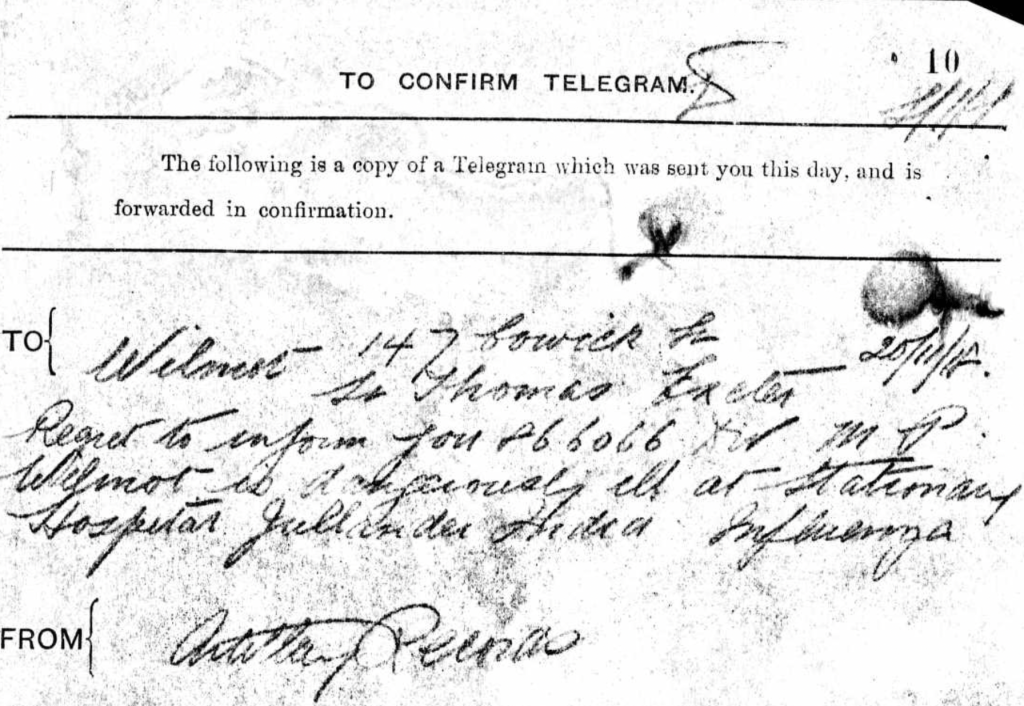 10
TO CONFIRM TELEGRAM.
The following is a copy of a Telegram which was sent you this day, and is
forwarded in confirmation.
TO
Wilmot 147 Cowick St 20/11/18.
St Thomas Exeter
Regret to inform you 266066 Dvr M P
Wilmot is dangerously ill at Stationary
Hospital Jullander India Influenza
FROM
Artillery Records